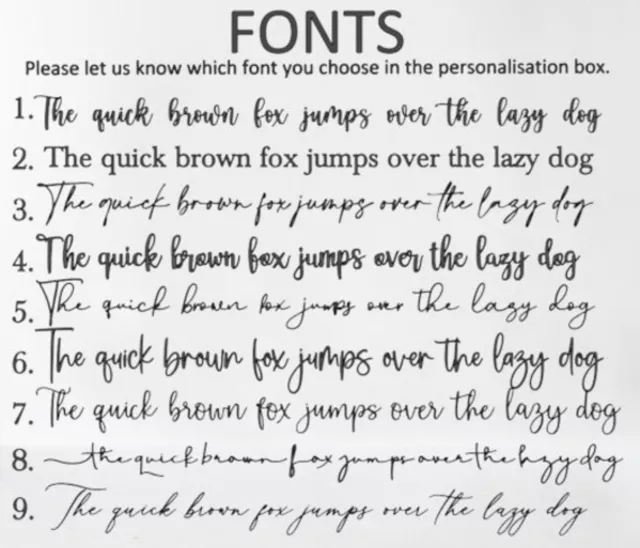 FONTS
Please let us know which font you choose in the personalisation box.
1. The quick brown fox jumps over the lazy dog
2. The quick brown fox jumps over the lazy dog
3. The quick brown fox jumps over the lazy dog
4. The quick brown fox jumps over the lazy dog
5. The quick brown fox jumps over the lazy dog
6. The quick brown fox jumps over the lazy dog
7. The quick brown fox jumps over the lazy dog
8. the quick brown fox jumps over the lazy dog
9. The quick brown fox jumps over the lazy dog